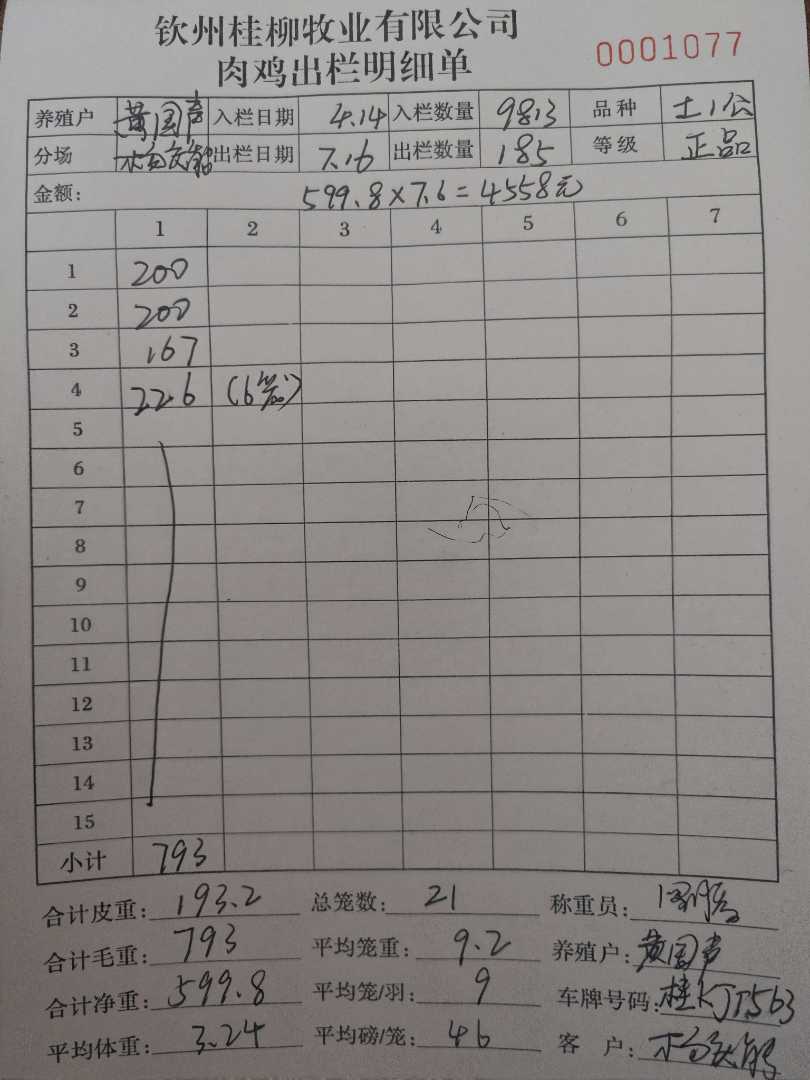 钦州桂柳牧业有限公司
肉鸡出栏明细单
0001077
养殖户 黄国声 入栏日期 4.14 入栏数量 9813 品种 土1公
分场 出栏日期 7.16 出栏数量 185 等级 正品
金额: 599.8×7.6=4558元
1 2 3 4 5 6 7
1 200
2 200
3 167
4 226 (6笼)
5
6
7
8
9
10
11
12
13
14
15
小计 793
合计皮重: 193.2 总笼数: 21 称重员:
合计毛重: 793 平均笼重: 9.2 养殖户: 黄国声
合计净重: 599.8 平均笼/羽: 9 车牌号码: 桂KJT563
平均体重: 3.24 平均磅/笼: 46 客 户: